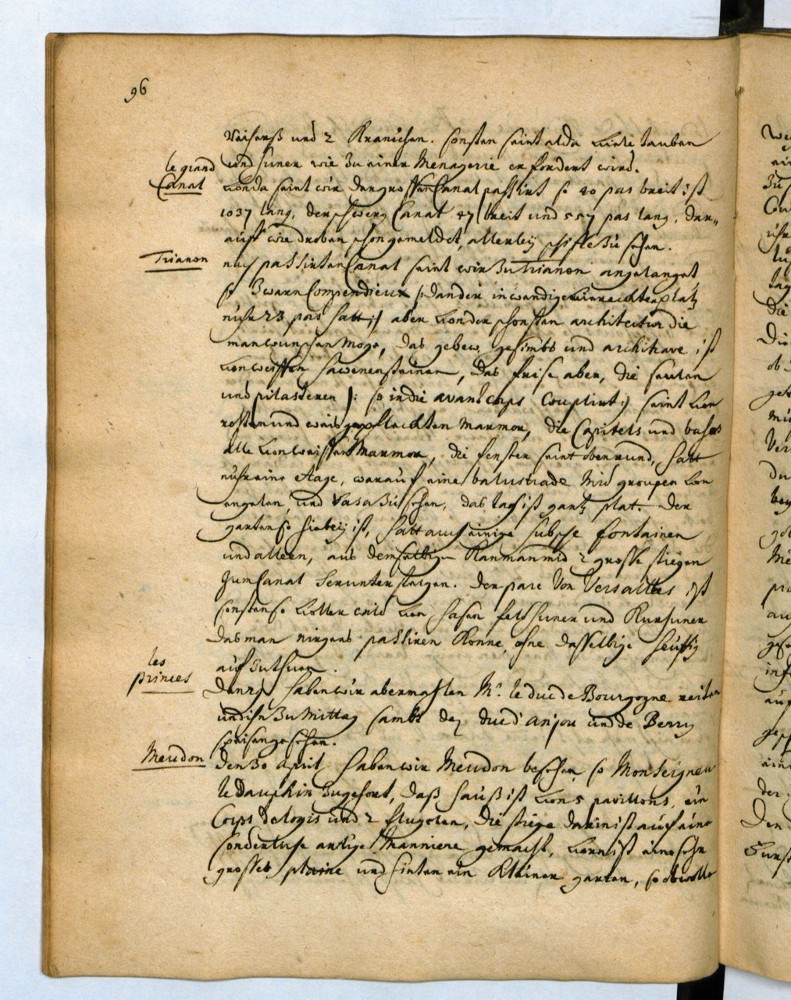 96
und 2 Kranichen. sonsten seint alda viele tauben
le grand
Canal
und hüner wie zu einer Menagerie erfordert wird.
von da seint wir den grossen Canal passirt so 20 pas breit ist
1037 lang, der zwerg Canal 47 breit und 557 pas lang, dar-
auff wie droben schon gemeldet, allerley schiffe zu sehen.
Trianon
nach passirten Canal seint wir zu trianon angelanget
so zwarn Compendieux
nuhr 23 pas hatt :/ aber von der schönsten architectur die
man wünschen moge, das gebew, gesimbs und architrave ist
von weissen steinen, das frise aber, die seulen
und pilasteren /: so in die avant corps :/ seint von
rothen und weis marmor, die Capitels und bases
alle von weissen Marmor, die fenster seint oben rund, hatt
nuhr eine etage, warauf eine balustrade mid groupen von
engelen, und vasa zu sehen, das tach ist gantz plat. der
garten so hiebey ist, hatt auch einige hübsche fontainen
und alleen, aus demselbigen kan man mid 2 grosse stiegen
zum Canal herunter steigen. der parc von Versailles ist
sonsten so voller wild von hasen feldhüner und
das man nirgens passiren konne, ohne dasselbige heuffig
auf zu
les
princes
den 29 haben wir abermahlen Mr. le duc de Bourgogne reiten
und ihn zu Mittag sambt den duc d'anjou und de Berry
speisen gesehen.
Meudon
den 30 april haben wir Meudon besehen so Monseigneur
le dauphin zugehort, das hauß ist von 5 pavillons, ein
Corps de logis und 2 flugelen, die stiege darin ist auf eine
sonderliche artige Manniere gemacht, vorn ist eine sehr
grosses plaine und hinten ein kleiner garten, so